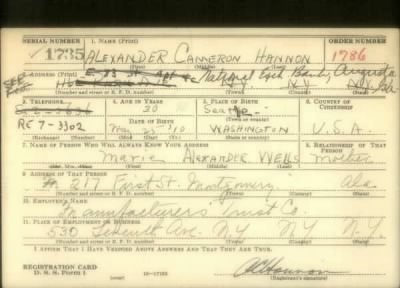 SERIAL NUMBER 1. NAME (Print) ORDER NUMBER
1735 ALEXANDER CAMERON HANNON 1786
(First) (Middle) (Last)
2. ADDRESS (Print)
SEE National Bank, Augusta
N.Y. N.Y. Ga
(Number and street or R. F. D. number) (Town) (County) (State)
3. TELEPHONE 4. AGE IN YEARS 5. PLACE OF BIRTH 6. COUNTRY OF CITIZENSHIP
30 Seattle
RE 7-3302 DATE OF BIRTH (Town or county)
May 25 - 710 WASHINGTON U.S.A.
(Exchange) (Number) (Mo.) (Day) (Yr.) (State or country)
7. NAME OF PERSON WHO WILL ALWAYS KNOW YOUR ADDRESS 8. RELATIONSHIP OF THAT PERSON
Marie ALEXANDER WELLS Mother
(Mr., Mrs., Miss) (First) (Middle) (Last)
9. ADDRESS OF THAT PERSON
# 217 First St. Montgomery Ala.
(Number and street or R. F. D. number) (Town) (County) (State)
10. EMPLOYER'S NAME
Manufacturers Trust Co.
11. PLACE OF EMPLOYMENT OR BUSINESS
530 Seventh Ave. N.Y. N.Y. N.Y.
(Number and street or R. F. D. number) (Town) (County) (State)
I AFFIRM THAT I HAVE VERIFIED ABOVE ANSWERS AND THAT THEY ARE TRUE.
REGISTRATION CARD
D. S. S. Form 1 (over) 16-17105 (Registrant's signature)
ACHannon